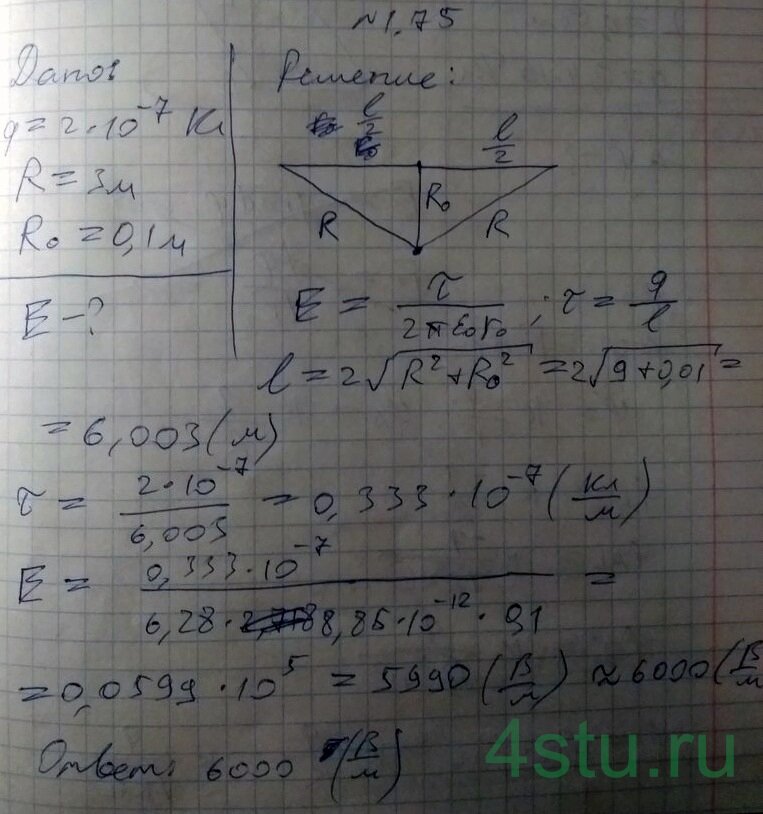 №1.75
Дано:
q = 2·10⁻⁷ Кл
R = 3м
R₀ = 0,1м
E - ?
Решение:
l/2
l/2
R₀
R
R
E = τ/(2πε₀r₀) ; τ = q/l
l = 2√(R² + R₀²) = 2√(9+0,01) =
= 6,003 (м)
τ = 2·10⁻⁷/6,003 = 0,333·10⁻⁷ (Кл/м)
E = 0,333·10⁻⁷/(6,28·8,85·10⁻¹²·0,1) =
= 0,0599·10⁵ = 5990 (В/м) ≈ 6000 (В/м
Ответ: 6000 (В/м)
4stu.ru